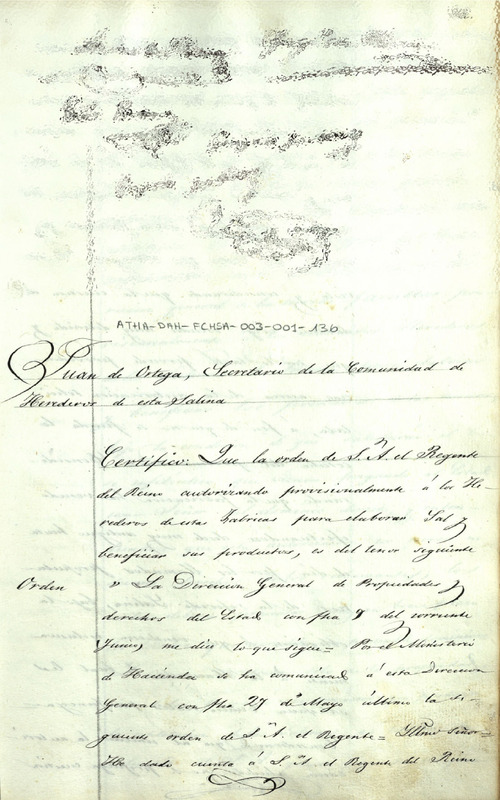 ATHA-DAH-FCHSA-003-001-136
Juan de Ortega, Secretario de la Comunidad de
Herederos de esta Salina
Certifico: Que la orden de S.A. el Regente
del Reino autorizando provisionalmente á los He-
rederos de estas Fabricas para elaborar Sal y
beneficiar sus productos, es del tenor siguiente
Orden
" La Direccion General de Propiedades y
derechos del Estado con fha 8 del corriente
Junio, me dice lo que sigue = Por el Ministerio
de Hacienda se ha comunicado á esta Direccion
General con fha 27 de Mayo último la si-
guiente orden de S.A. el Regente = Yltmo Señor =
He dado cuenta á S.A. el Regente del Reino